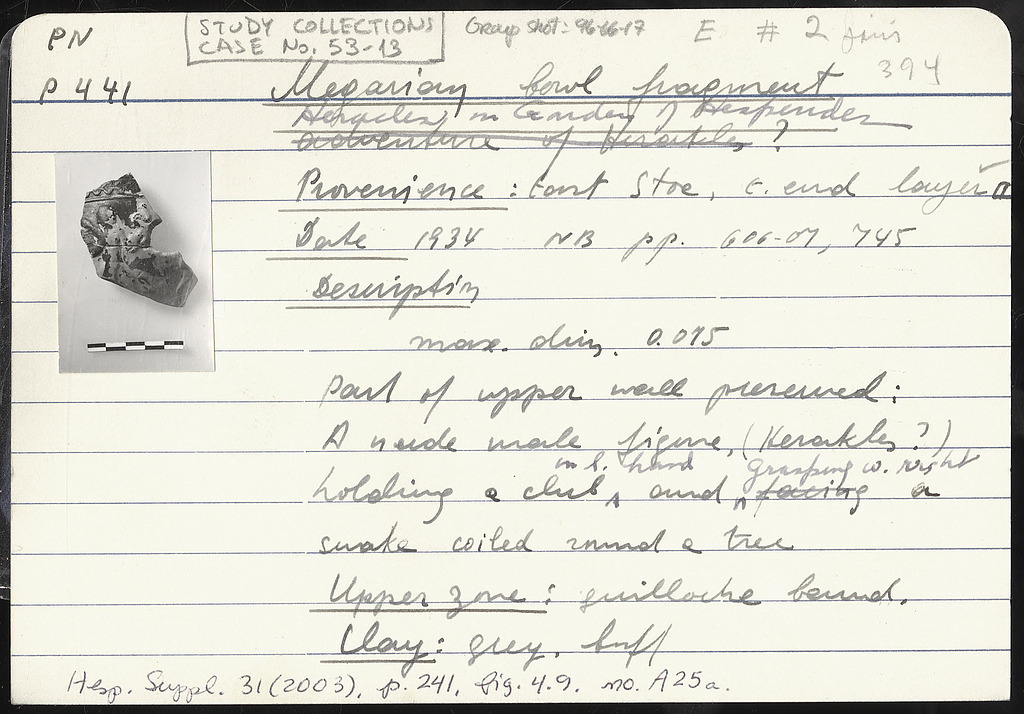 PN
STUDY COLLECTIONS
CASE No. 53-13
Group shot: 96-66-17
E # 2
394
P 441
Megarian bowl fragment
Heracles in Garden of Hesperides
adventure of Herakles ?
Provenience : East Stoa, E. end layer II
Date 1934 NB pp. 606-07, 745
Description
max. dim. 0.075
Part of upper wall preserved :
A nude male figure, (Herakles ?)
in l. hand grasping w. right
holding a club, and facing a
snake coiled round a tree
Upper zone : guilloche band.
Clay : grey. buff
Hesp. Suppl. 31 (2003), p. 241, fig. 4.9. no. A25a.